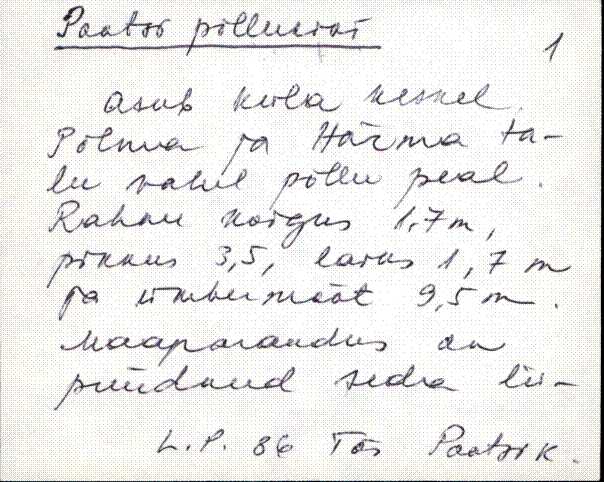 Paatsa põllukivi
1
asub küla keskel.
Põlma ja Härma ta-
lu vahel põllu peal.
Rahnu kõrgus 1,7m,
pikkus 3,5, laius 1,7 m
ja ümbermõõt 9,5 m.
Maaparandus on
püüdnud seda lii-
L.P. 86 Tõs Paatsik.